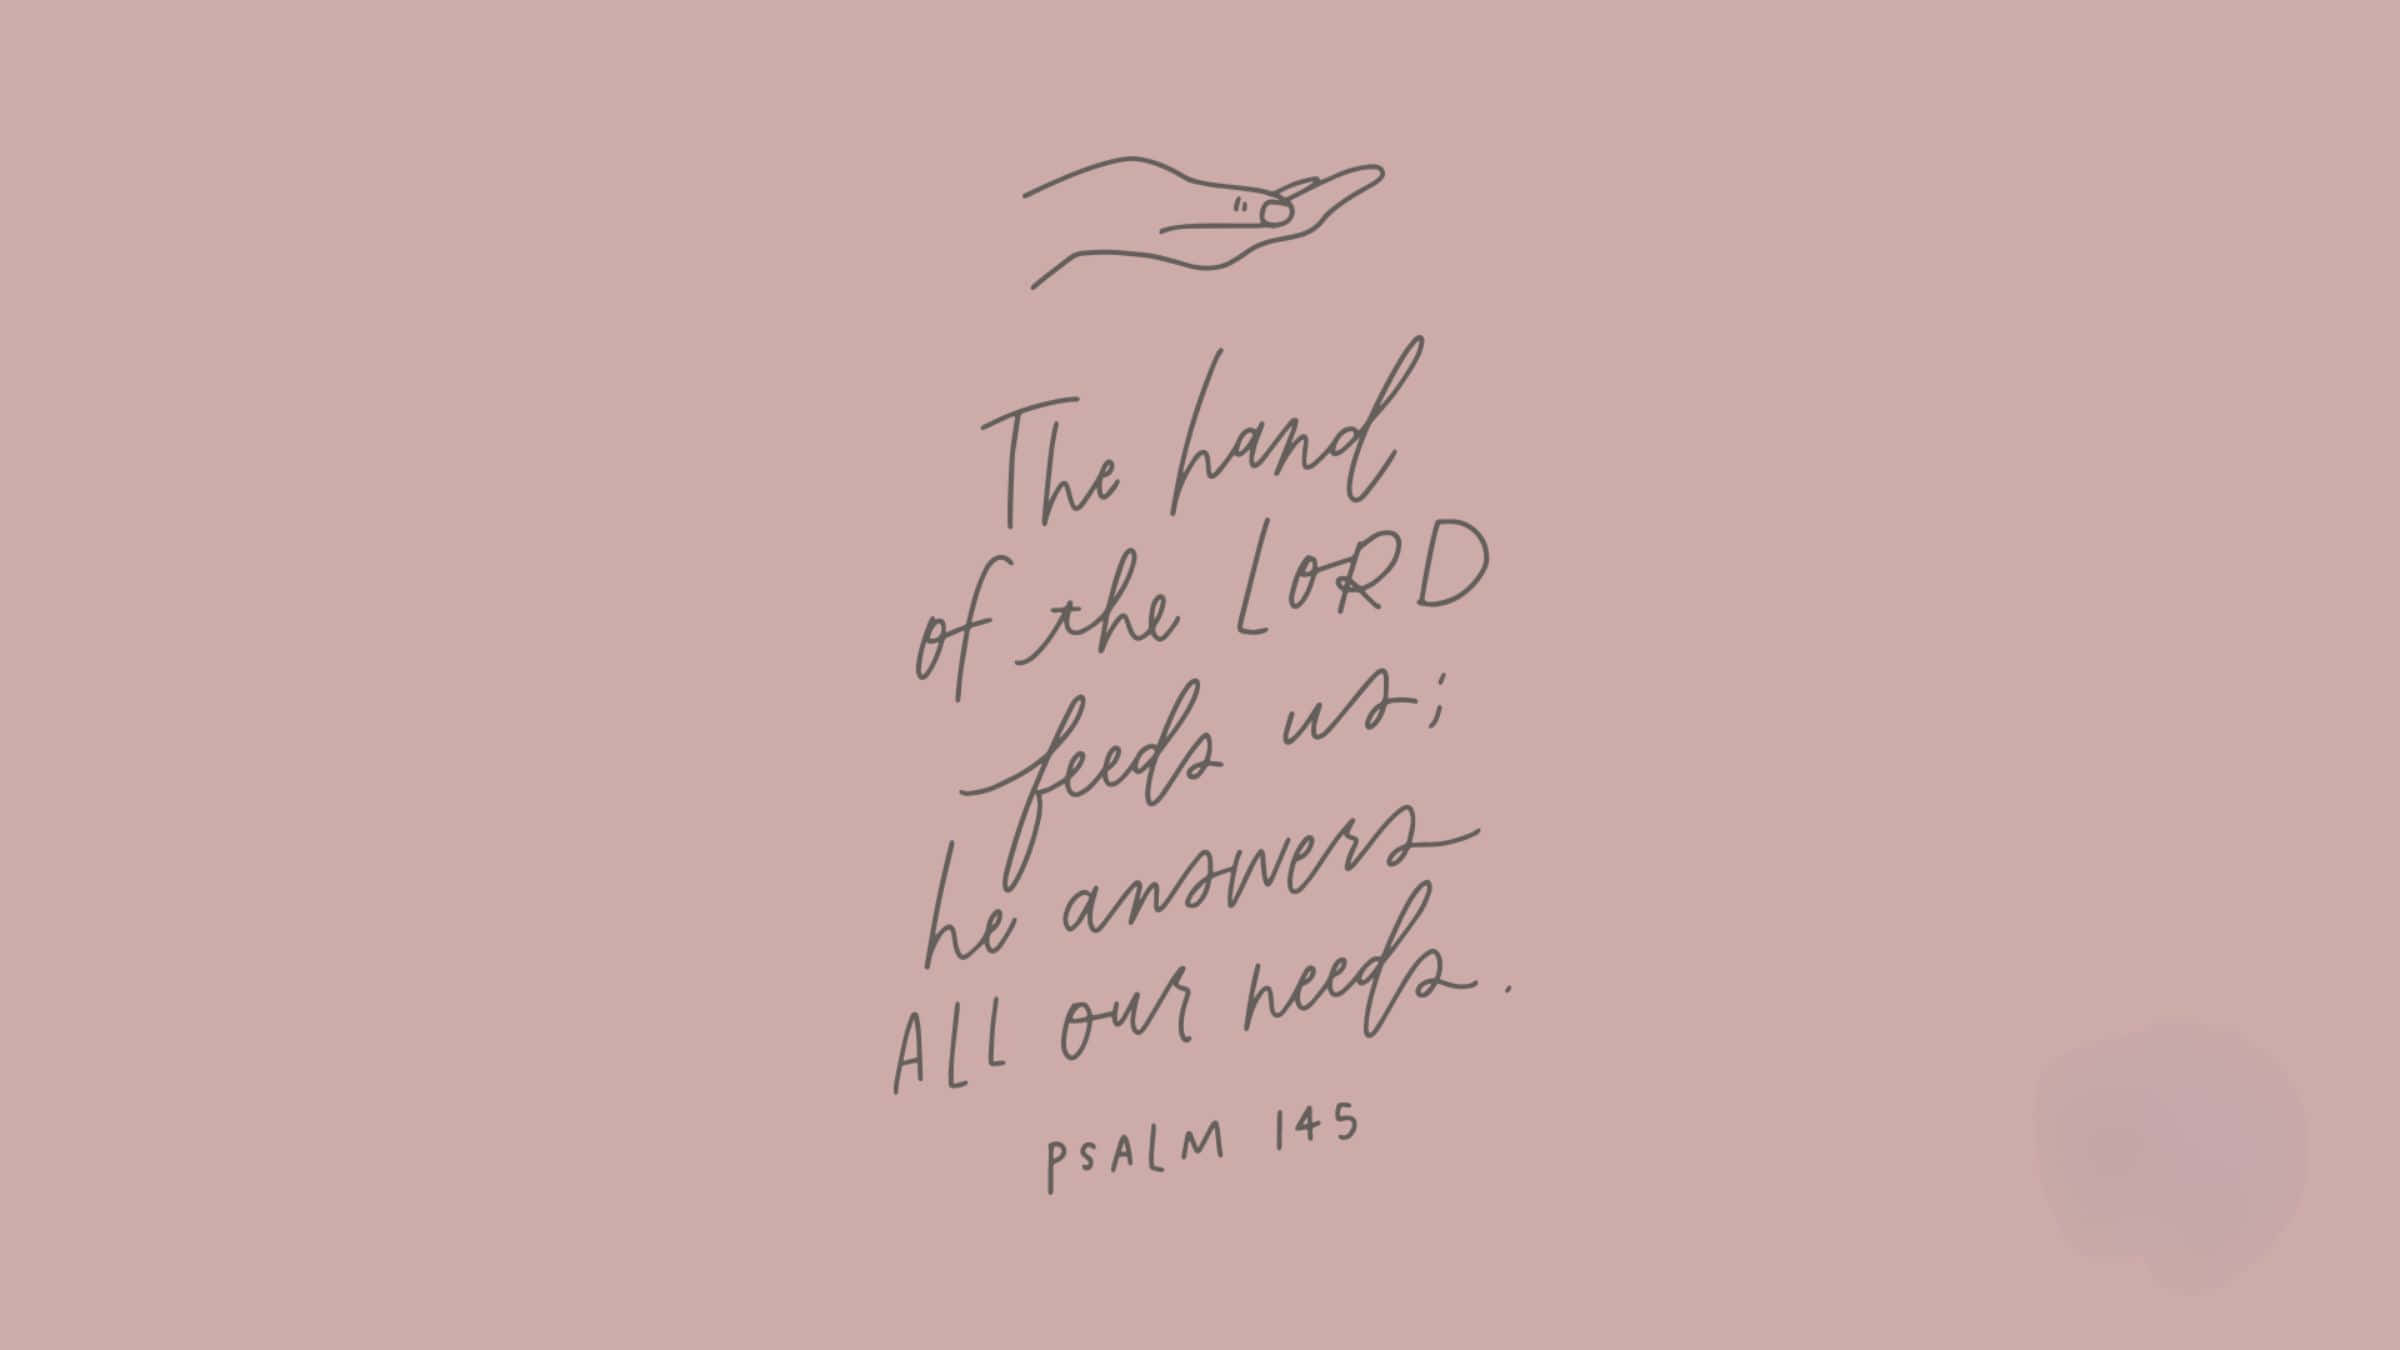 The hand
of the LORD
feeds us;
he answers
ALL our needs.
PSALM 145